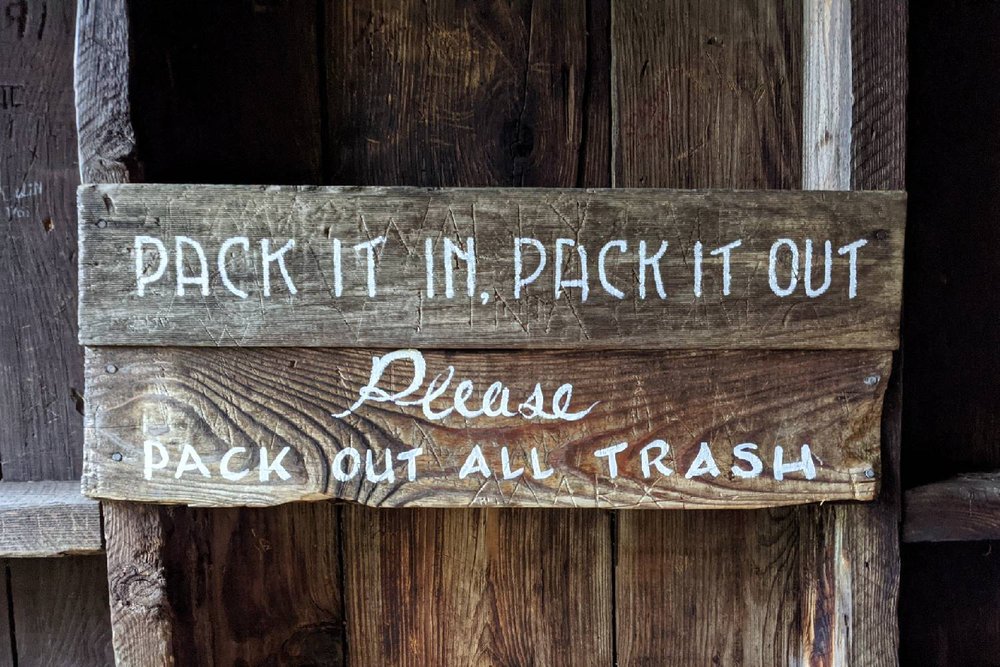 PACK IT IN, PACK IT OUT
Please
PACK OUT ALL TRASH